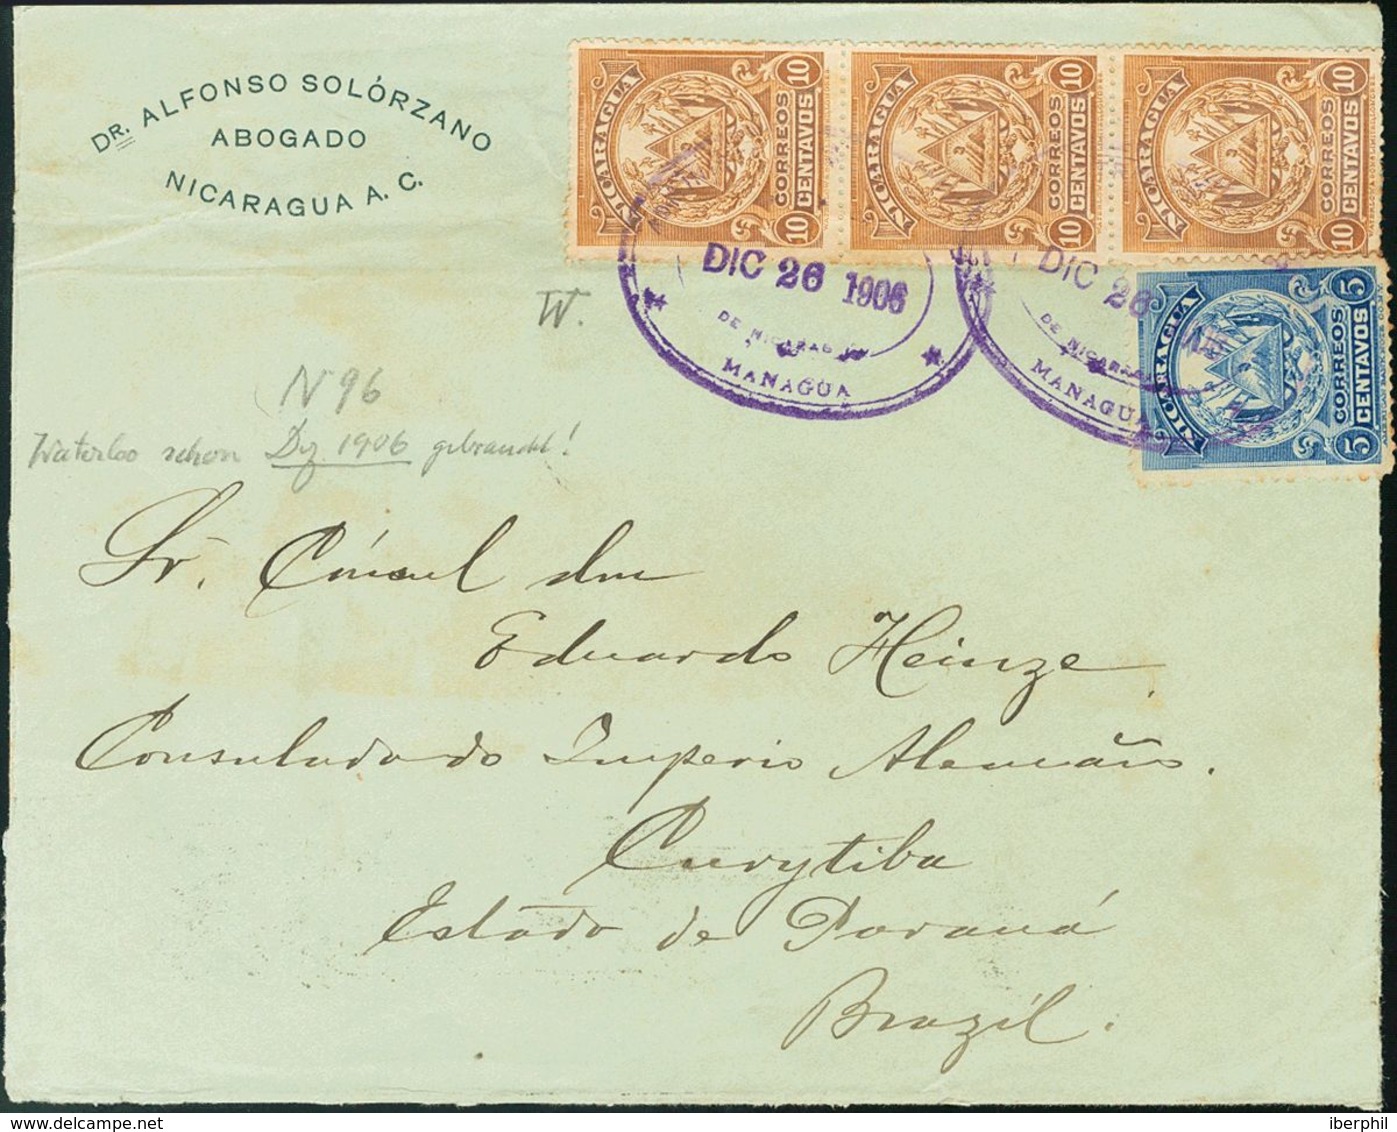 DR. ALFONSO SOLÓRZANO
ABOGADO
NICARAGUA A. C.
NICARAGUA
CORREOS
10 CENTAVOS 10
NICARAGUA
CORREOS
10 CENTAVOS 10
NICARAGUA
CORREOS
10 CENTAVOS 10
DIC 26 1906
DE NICARAGUA
MANAGUA
DIC 26
DE NICARAGUA
MANAGUA
NICARAGUA
CORREOS
5 CENTAVOS 5
W.
N 96
Waterloo schon Dz 1906 gebraucht!
Sr. Cónsul don
Eduardo Heinze
Consulado do Imperio Alemão.
Curytiba
Estado de Paraná
Brazil.
delcampe.net
iberphil